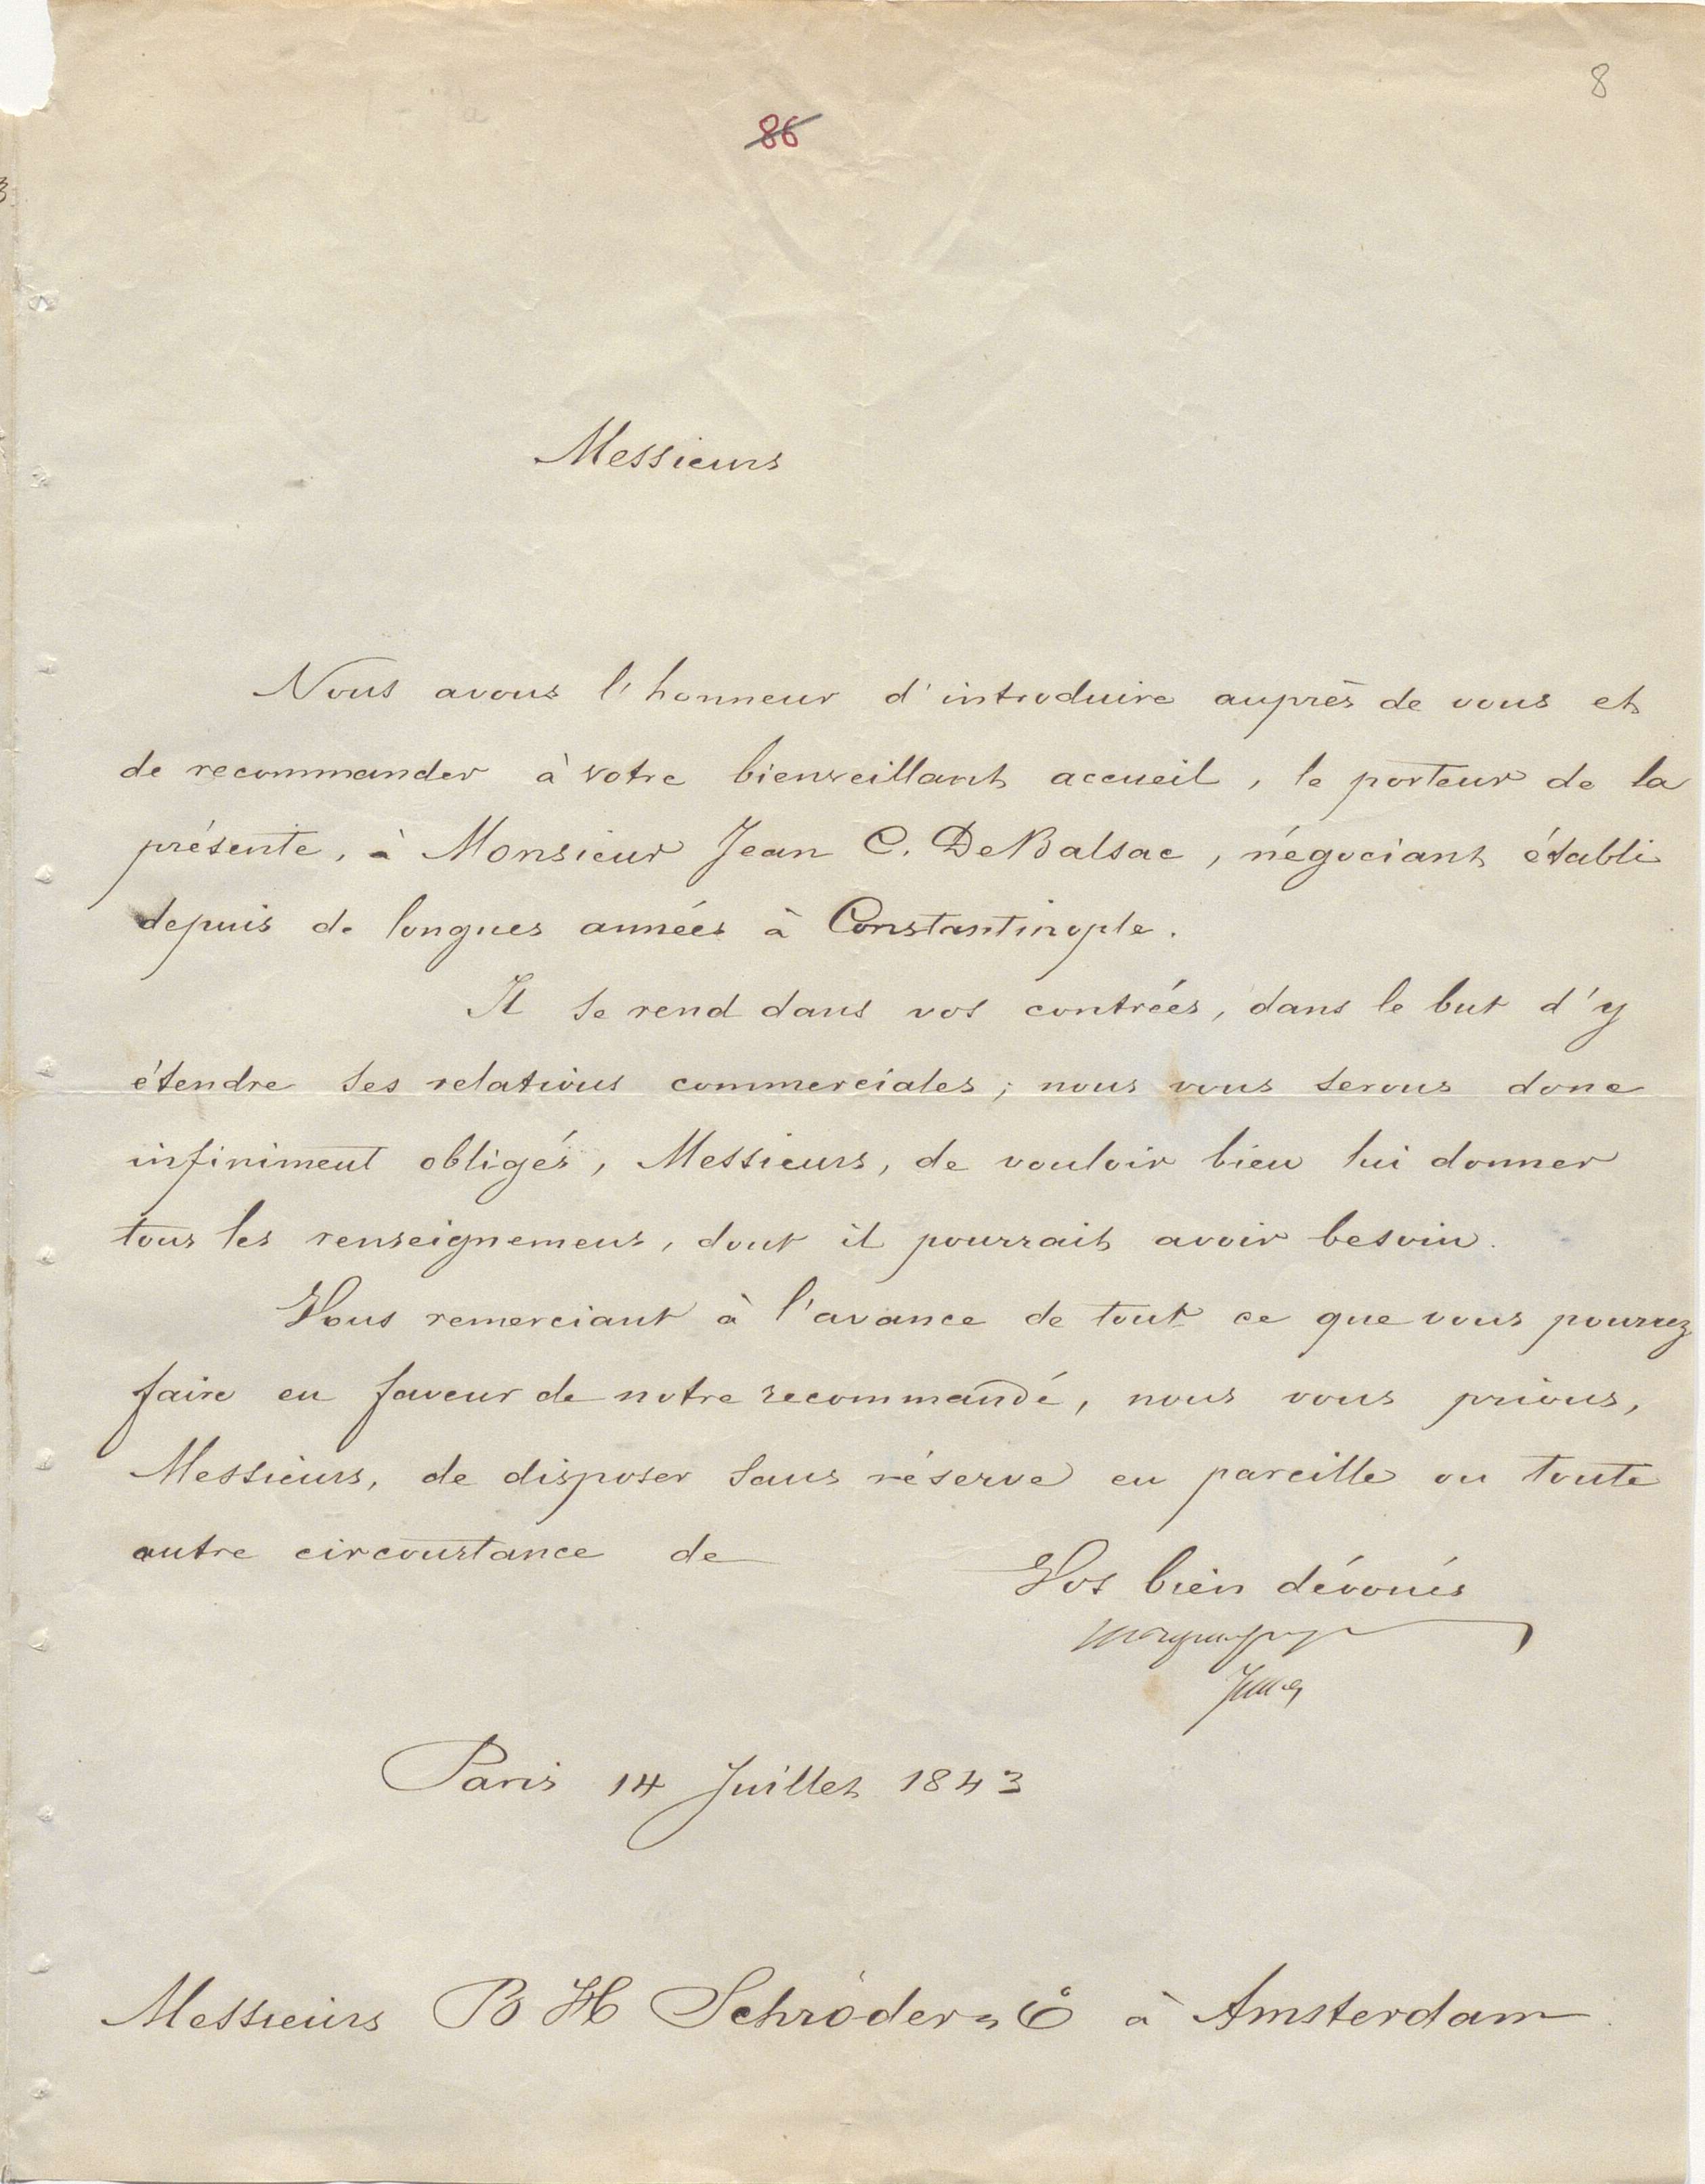 8
86
Messieurs
Nous avons l'honneur d'introduire auprès de vous et
de recommander à votre bienveillant accueil, le porteur de la
présente, à Monsieur Jean C. DeBalsac, négociant établi
depuis de longues années à Constantinople.
Il se rend dans vos contrées, dans le but d'y
étendre ses relations commerciales; nous vous serons donc
infiniment obligés, Messieurs, de vouloir bien lui donner
tous les renseignemens, dont il pourrait avoir besoin.
Vous remerciant à l'avance de tout ce que vous pourrez
faire en faveur de notre recommandé, nous vous prions,
Messieurs, de disposer sans réserve en pareille ou toute
autre circonstance de
Vos bien dévoués
Paris 14 Juillet 1843
Messieurs B H Schröder & Co à Amsterdam.